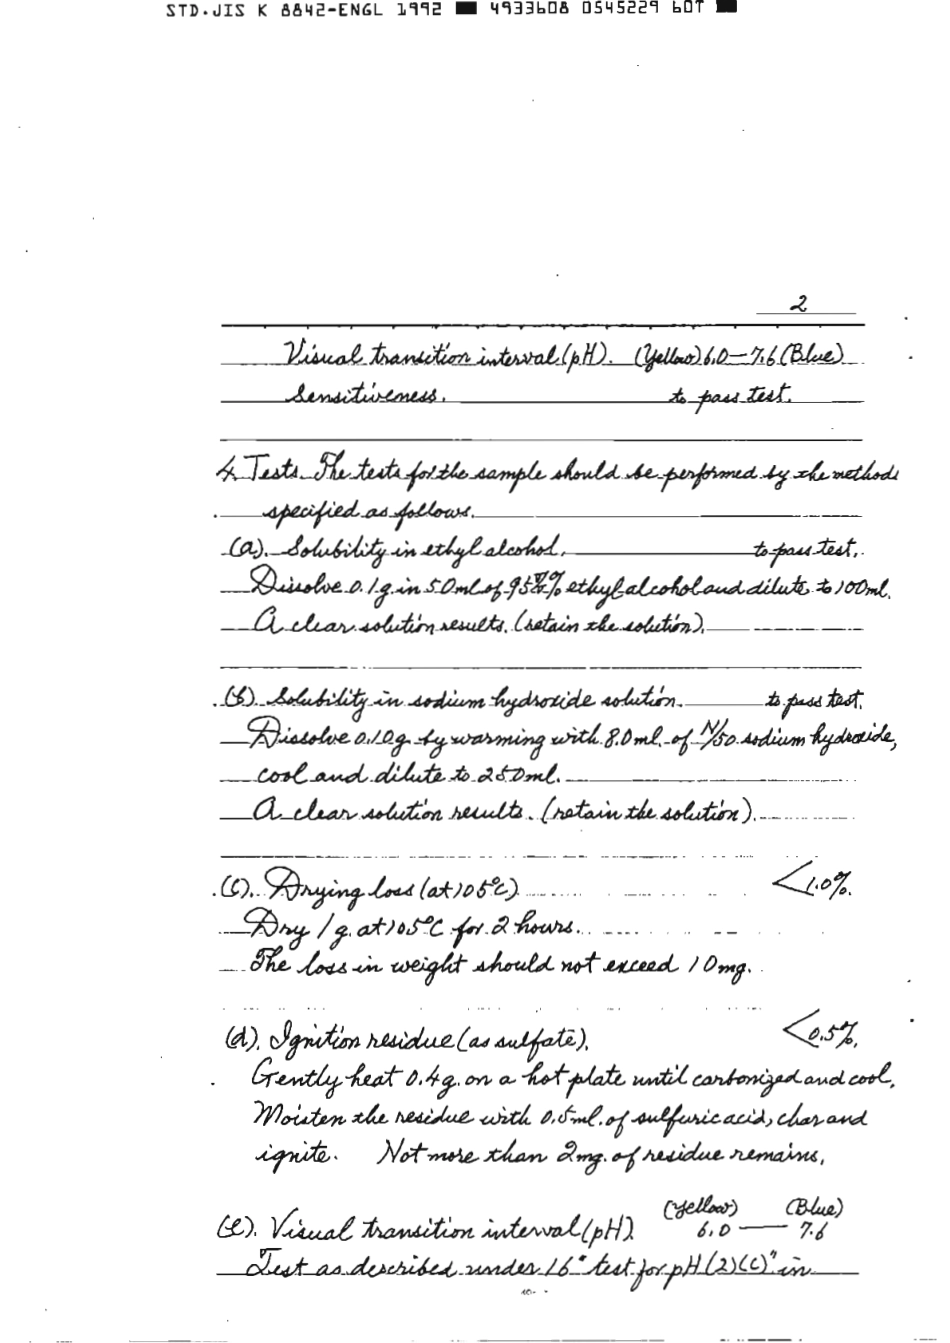 STD.JIS K 8842-ENGL 1992 ■ 4933608 0545229 60T ■
2
Visual transition interval (pH). (Yellow) 6.0—7.6 (Blue)
Sensitiveness. to pass test.
4. Tests. The tests for the sample should be performed by the methods
specified as follows.
(a). Solubility in ethyl alcohol. to pass test.
Dissolve 0.1g. in 50ml. of 95 % ethyl alcohol and dilute to 100ml.
A clear solution results. (retain the solution).
(b). Solubility in sodium hydroxide solution. to pass test.
Dissolve 0.10g. by warming with 8.0ml. of N/50 sodium hydroxide,
cool and dilute to 250ml.
A clear solution results. (retain the solution).
(c). Drying loss (at 105°C) <1.0%.
Dry 1g. at 105°C for 2 hours.
The loss in weight should not exceed 10mg.
(d). Ignition residue (as sulfate). <0.5%.
Gently heat 0.4g. on a hot plate until carbonized and cool.
Moisten the residue with 0.5ml. of sulfuric acid, char and
ignite. Not more than 2mg. of residue remains.
(e). Visual transition interval (pH) (Yellow) 6.0 — (Blue) 7.6
Test as described under 16 "test for pH (2)(c)" in